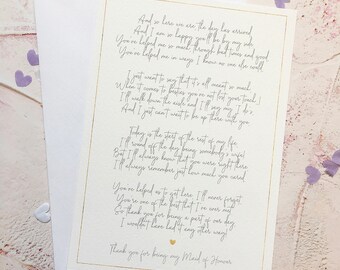 And so here we are the day has arrived
And I am so happy you'll be by my side
You've helped me so much through bad times and good
You've helped me in ways I knew no one else could
I just want to say that it's all meant so much
When it comes to besties you've not lost your touch!
I'll walk down the aisle and I'll say my I do's
And I just can't wait to be up there with you
Today is the start of the rest of my life
I'll come off the day being somebody's wife
But I'll always know that you were right there
I'll always remember just how much you cared
You've helped us to get here I'll never forget
You're one of the best that I've ever met
So thank you for being a part of our day
I wouldn't have had it any other way!
Thank you for being my Maid of Honour